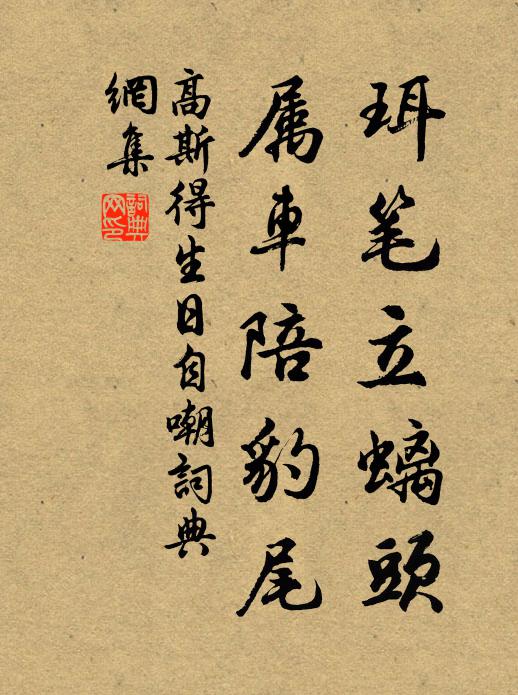 珥笔立螭頭
属車陪豹尾
高斯得生日自嘲詞典
網集
詞典
网印